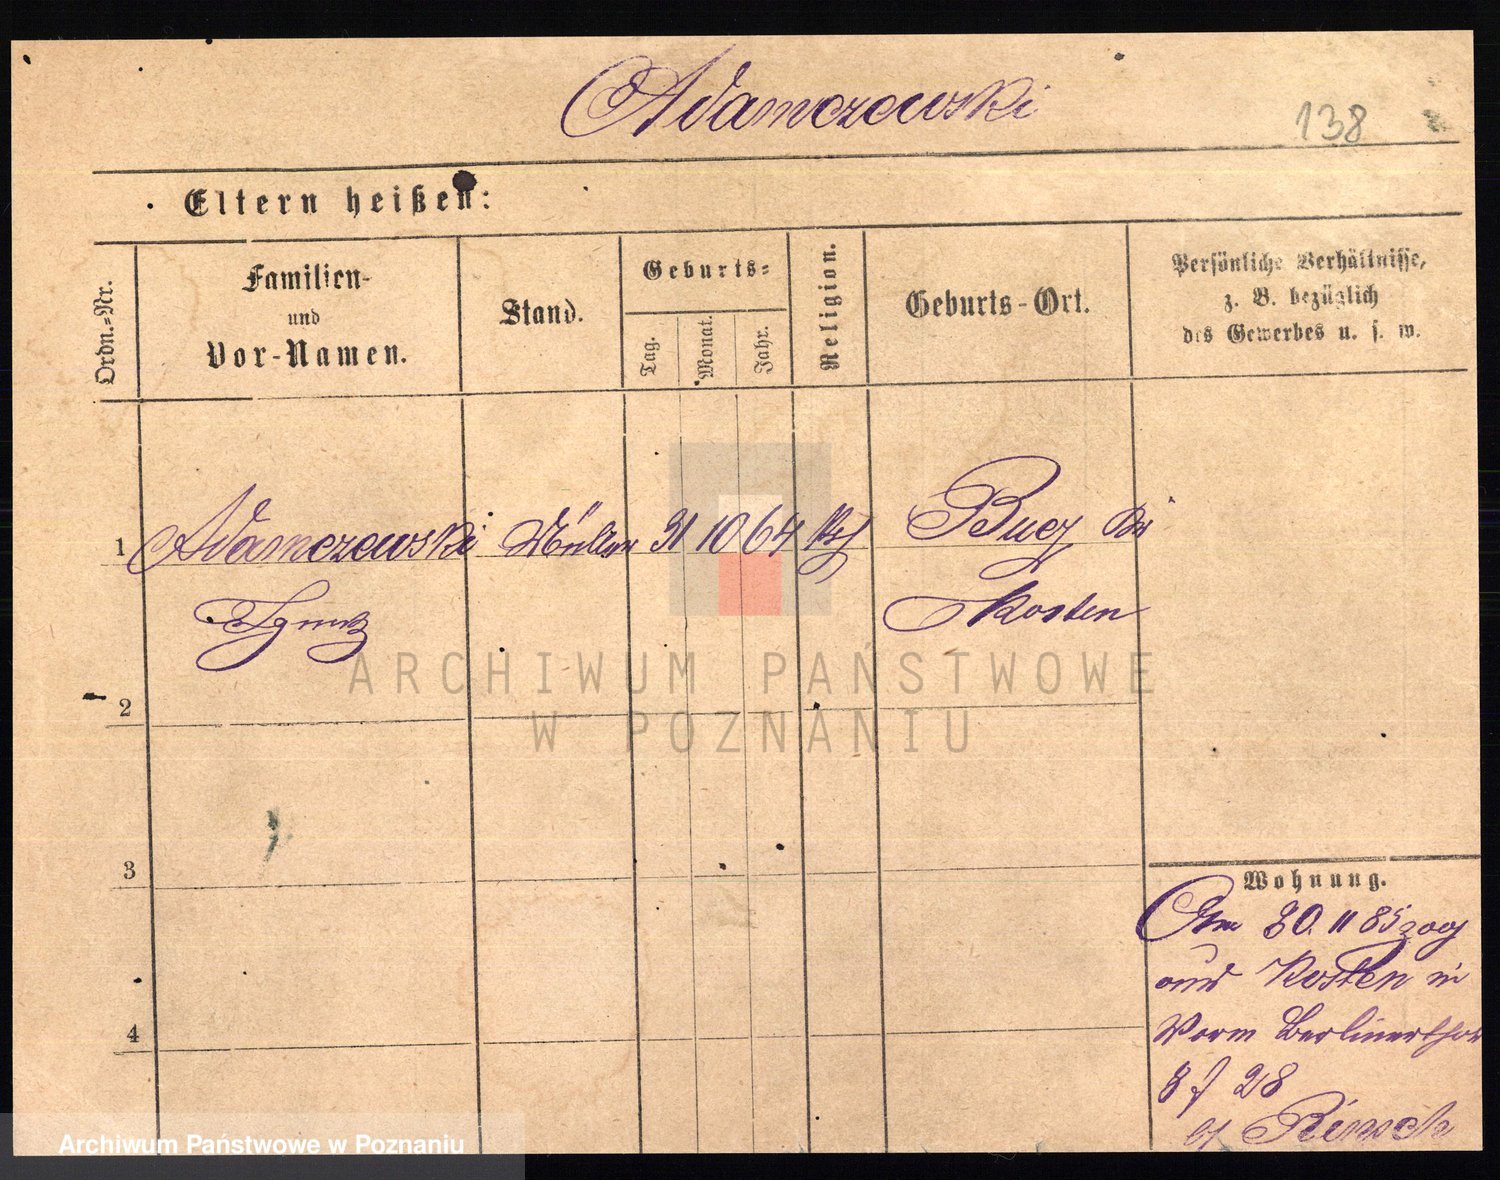 Adamczewski
138
Eltern heißen:
Ordn.-Nr.
Familien-
und
Vor-Namen.
Stand.
Geburts-
Tag.
Monat.
Jahr.
Religion.
Geburts-Ort.
Persönliche Verhältnisse,
z. B. bezüglich
des Gewerbes u. s. w.
1 Adamczewski Müller 31 10 64 Bucz
Ignatz Kosten
2
3
4
Wohnung.
Am 30. 11 85 zog
aus Kosten in
Vorm Berlinerthor
8 f 28
ARCHIWUM PAŃSTWOWE
W POZNANIU
Archiwum Państwowe w Poznaniu